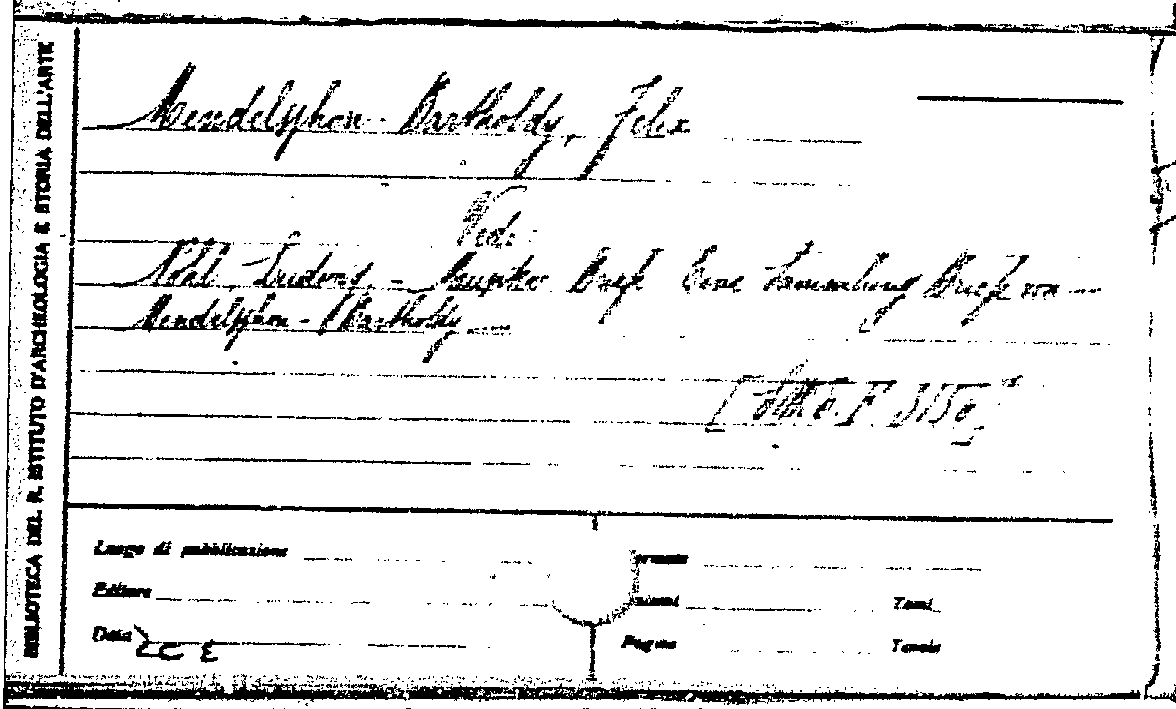 BIBLIOTECA DEL R. ISTITUTO D'ARCHEOLOGIA E STORIA DELL'ARTE
Mendelsshon-Bartholdy, Felix
Ved:
Nohl, Ludwig. - Musiker Brief. Eine Sammlung Briefe von
Mendelsshon-Bartholdy
Luogo di pubblicazione
ormato
Editore
Tomi
Data
Pagine
Tavole